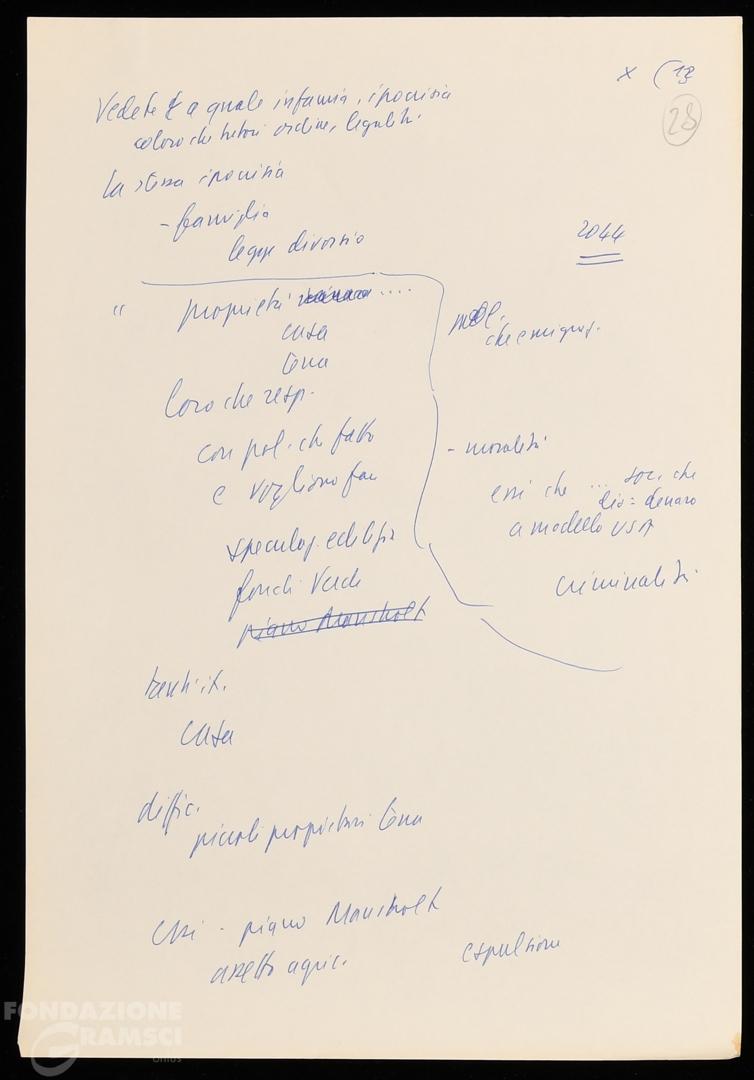 x (13
28
Vedete a quale infamia, ipocrisia
coloro che tutori ordine, legalità
la stessa ipocrisia
- famiglia
legge divorzio
2044
" proprietà ....
casa
terra
loro che resp.
con pol. che fatto
e vogliono fare
speculaz. edilizia
fondi Verdi
piano Mansholt
che emigraz.
- moralità
essi che ... soc. che
dio = denaro
a modello USA
criminalità
tanti it.
casa
diffic.
piccoli proprietari terra
Essi - piano Mansholt
assetto agric.
espulsione
FONDAZIONE
GRAMSCI
onlus